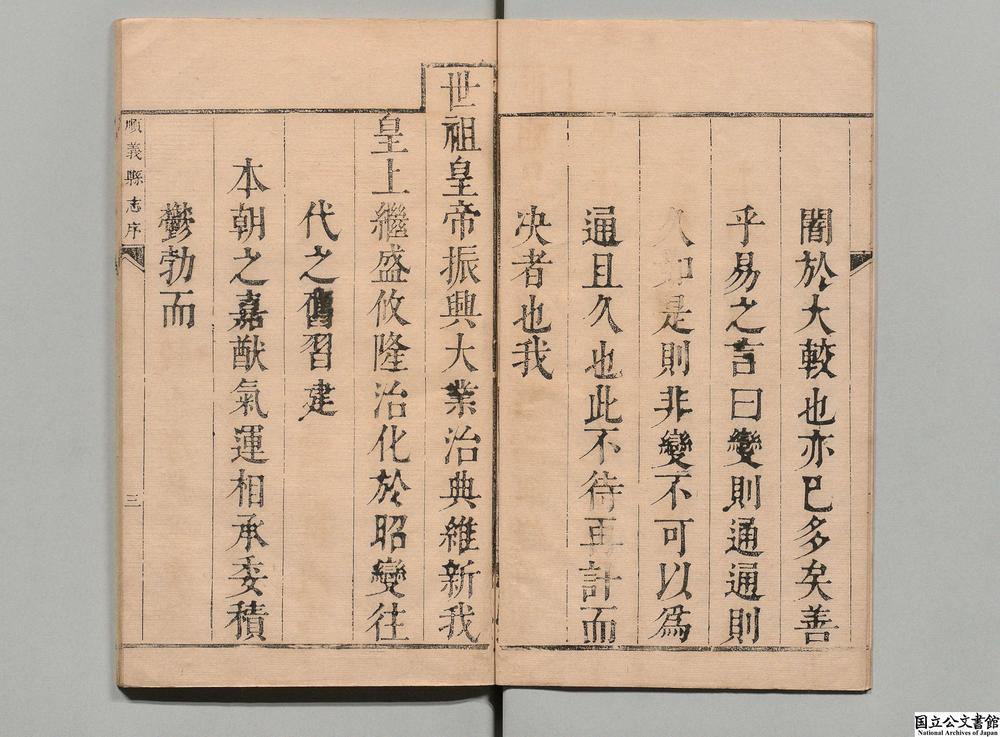 闇於大較也亦已多矣善
乎易之言曰變則通通則
久如是則非變不可以爲
通且久也此不待再計而
决者也我
世祖皇帝振興大業治典維新我
皇上繼盛攸隆治化於昭變往
代之舊習建
本朝之嘉猷氣運相承委積
鬱勃而
順義縣志序
三
国立公文書館
National Archives of Japan